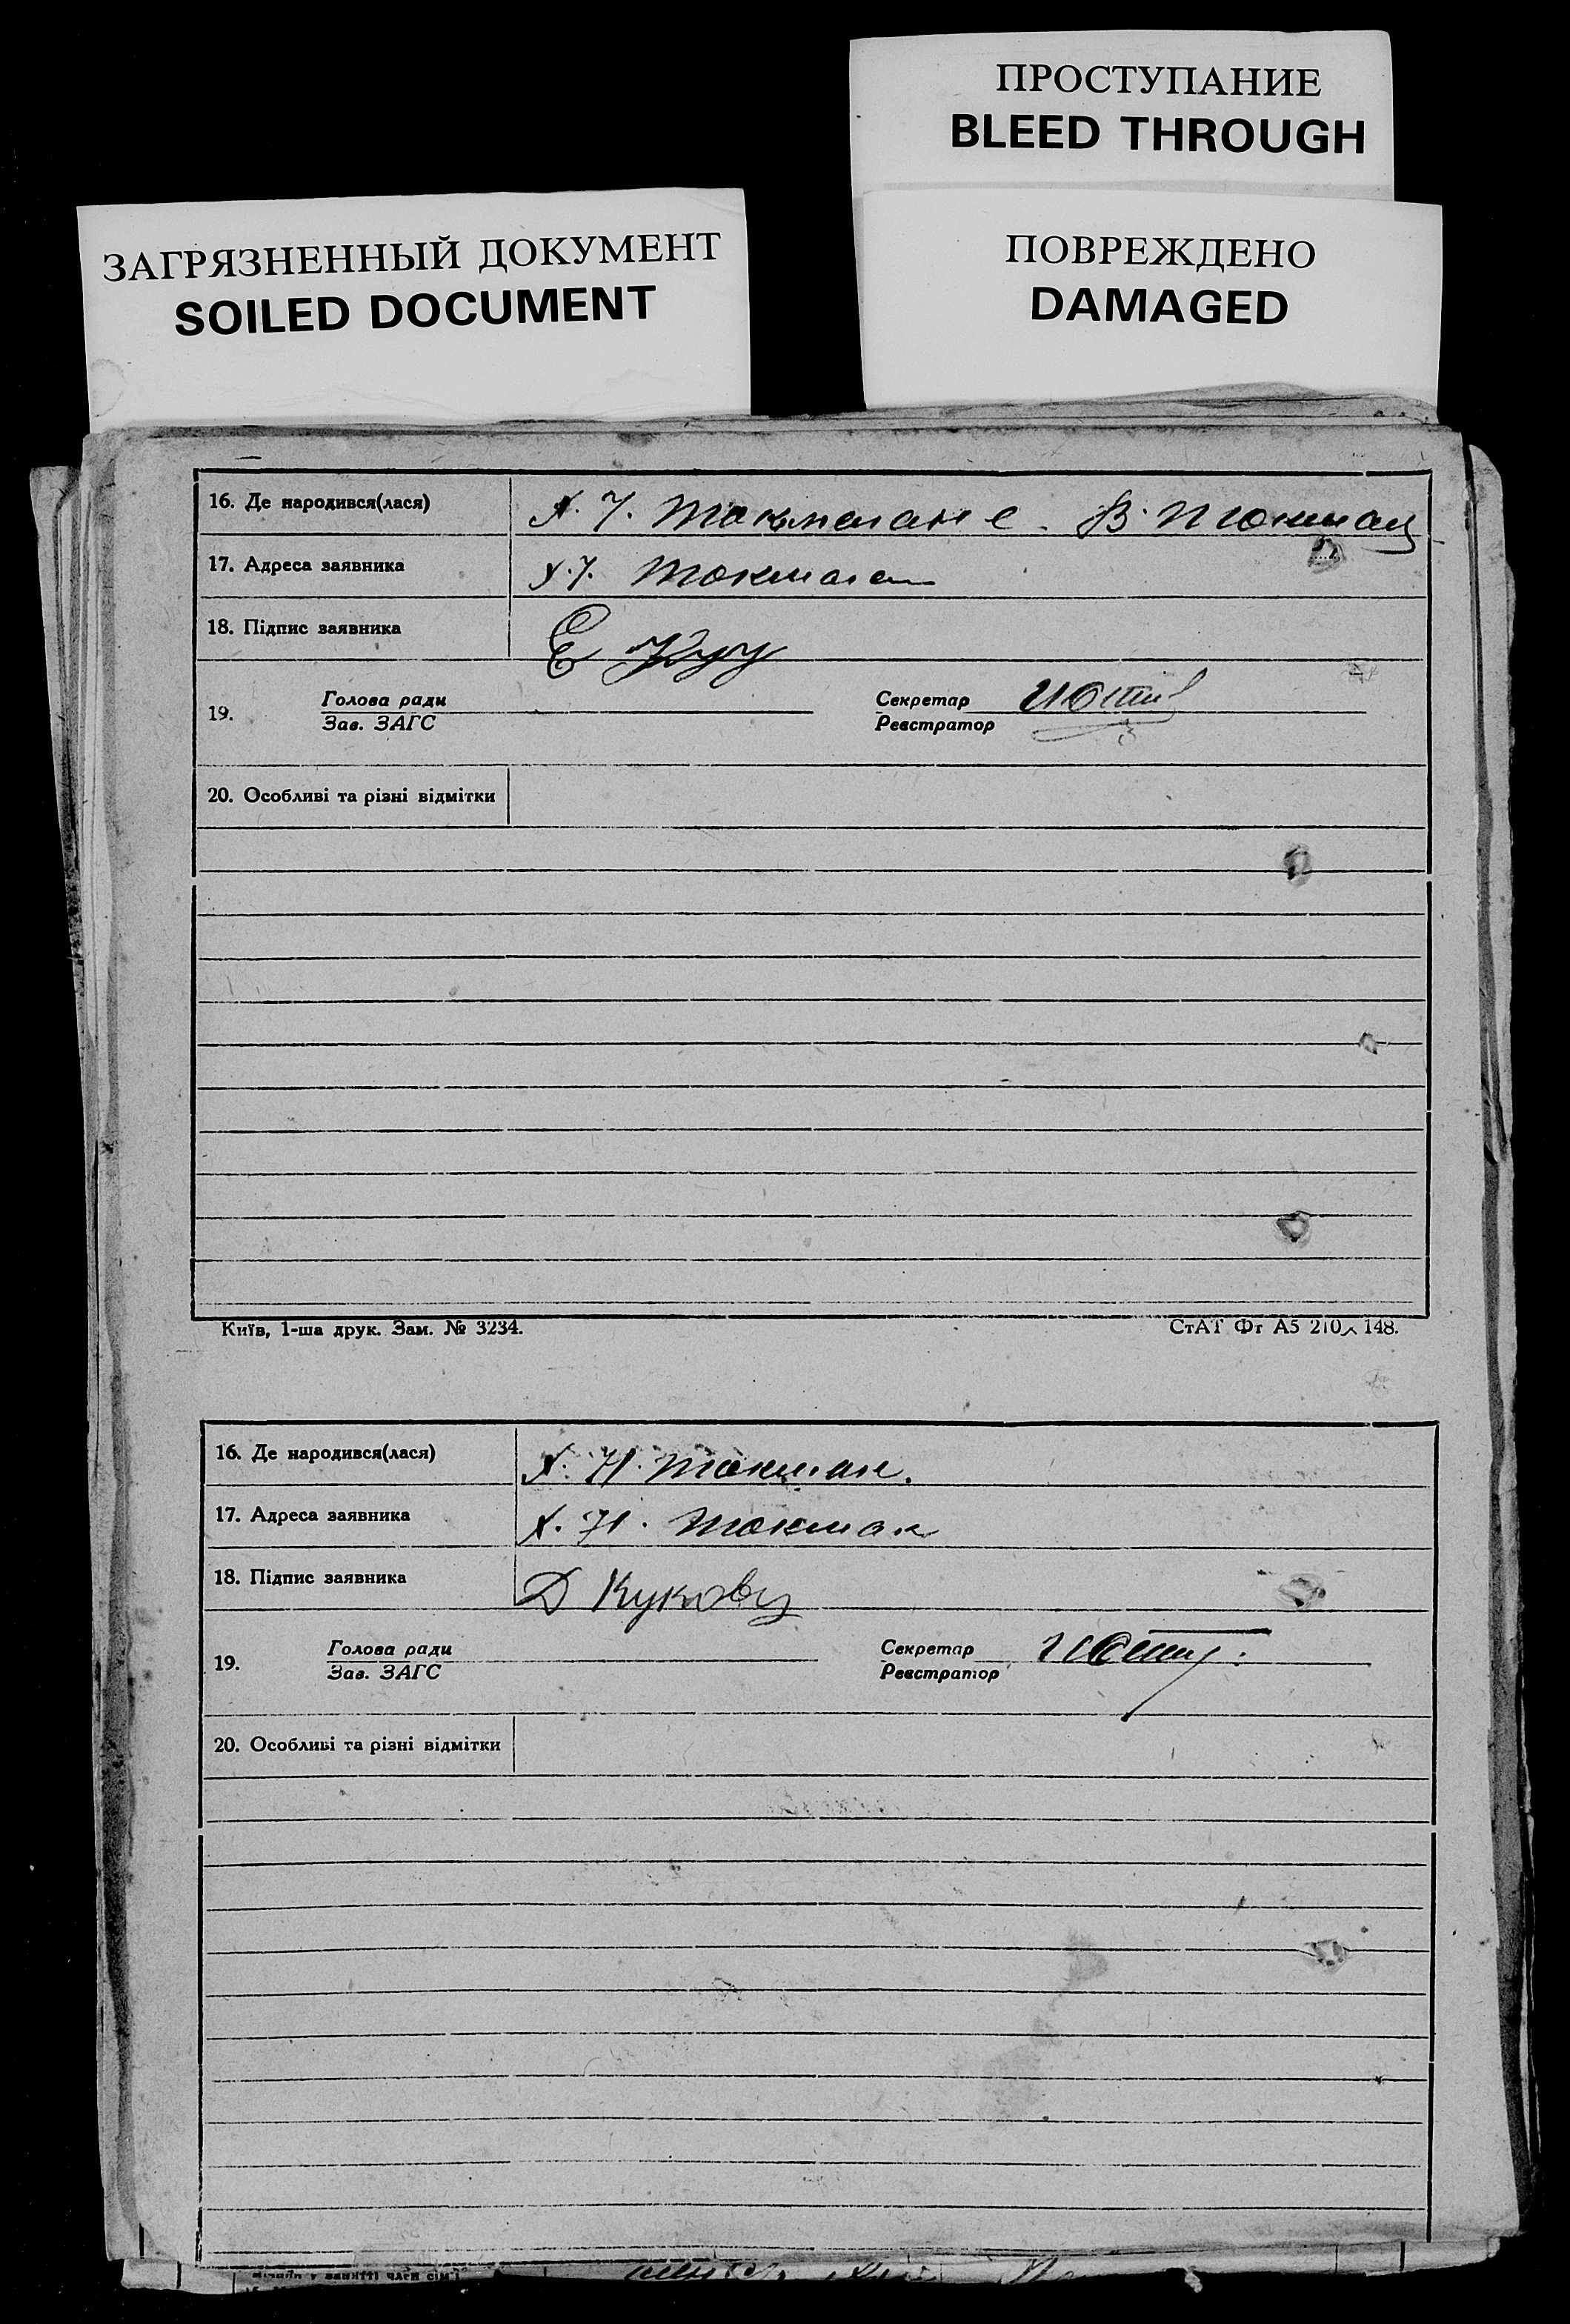 ПРОСТУПАНИЕ
BLEED THROUGH
ПОВРЕЖДЕНО
DAMAGED
ЗАГРЯЗНЕННЫЙ ДОКУМЕНТ
SOILED DOCUMENT
16. Де народився(лася)
17. Адреса заявника
18. Підпис заявника Е
19. Голова ради Секретар
Зав. ЗАГС Реєстратор
20. Особливі та різні відмітки
Київ, 1-ша друк. Зам. № 3234. СтАТ Фт А5 210 х 148.
16. Де народився(лася) Х. Токмак.
17. Адреса заявника Х. Токмак
18. Підпис заявника Д
19. Голова ради Секретар
Зав. ЗАГС Реєстратор
20. Особливі та різні відмітки